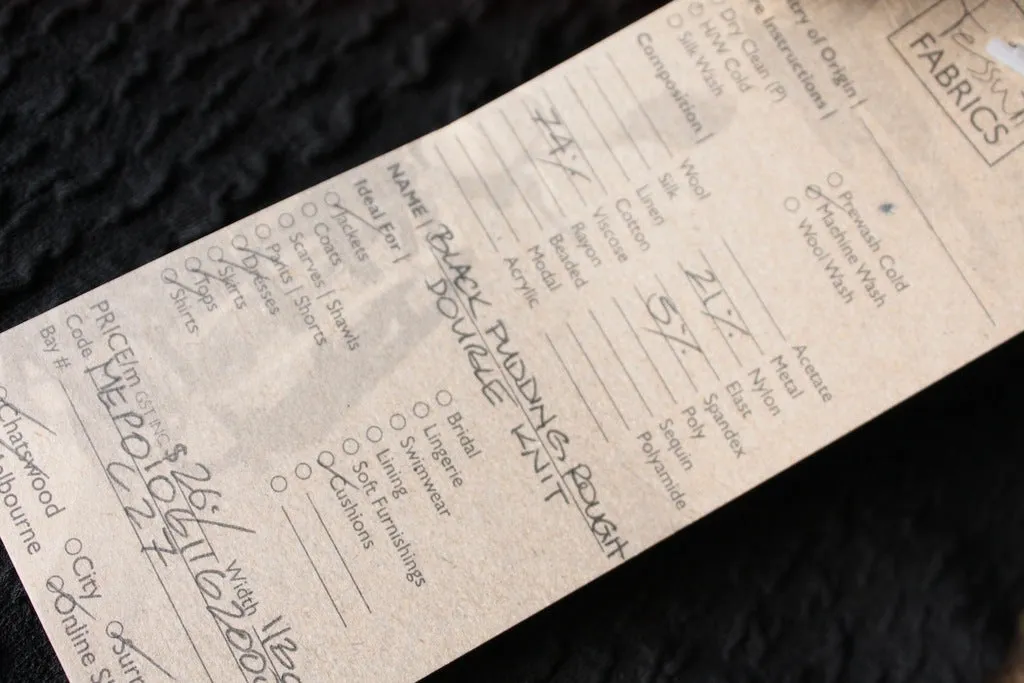 Tessuti
FABRICS
try of Origin |
re Instructions |
Dry Clean (P)
H/W Cold
Silk Wash
Prewash Cold
Machine Wash
Wool Wash
Composition |
Wool
Silk
Linen
Cotton
74% Viscose
Rayon
Beaded
Modal
Acrylic
Acetate
Metal
21% Nylon
Elast
5% Spandex
Poly
Sequin
Polyamide
NAME | BLACK PUDDING, ROUGH
DOUBLE KNIT
Ideal For |
Jackets
Coats
Scarves | Shawls
Pants | Shorts
Dresses
Skirts
Tops
Shirts
Bridal
Lingerie
Swimwear
Lining
Soft Furnishings
Cushions
PRICE/m GST INC $26./ Width
Code
Bay # C27
Chatswood
City
elbourne
Online S
Surr